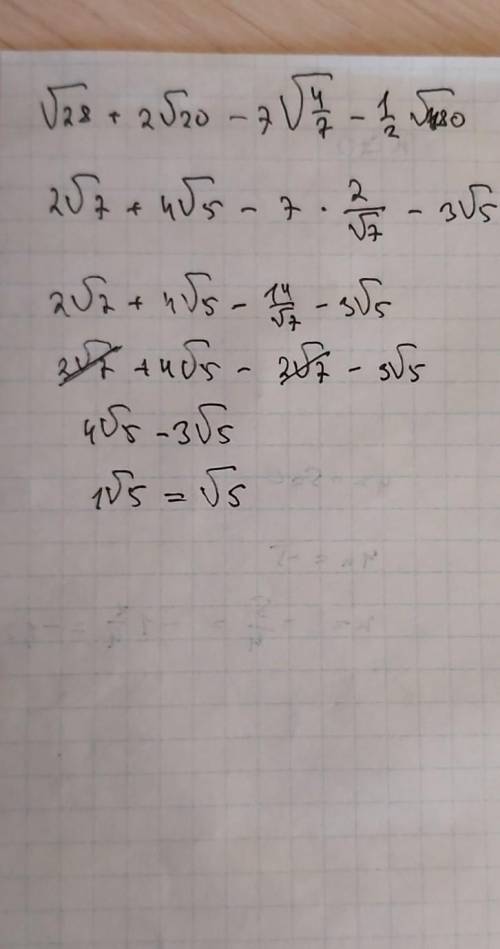 √28 + 2√20 - 7√4/7 - 1/2 √180
2√7 + 4√5 - 7 · 2/√7 - 3√5
2√7 + 4√5 - 14/√7 - 3√5
2√7 + 4√5 - 2√7 - 3√5
4√5 - 3√5
1√5 = √5